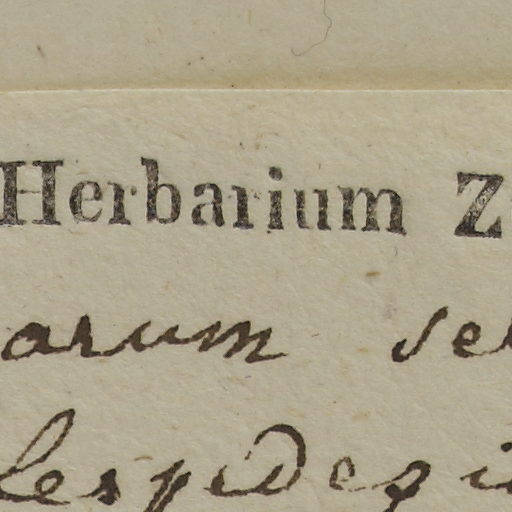 Herbarium Z
arum se
lespedezi